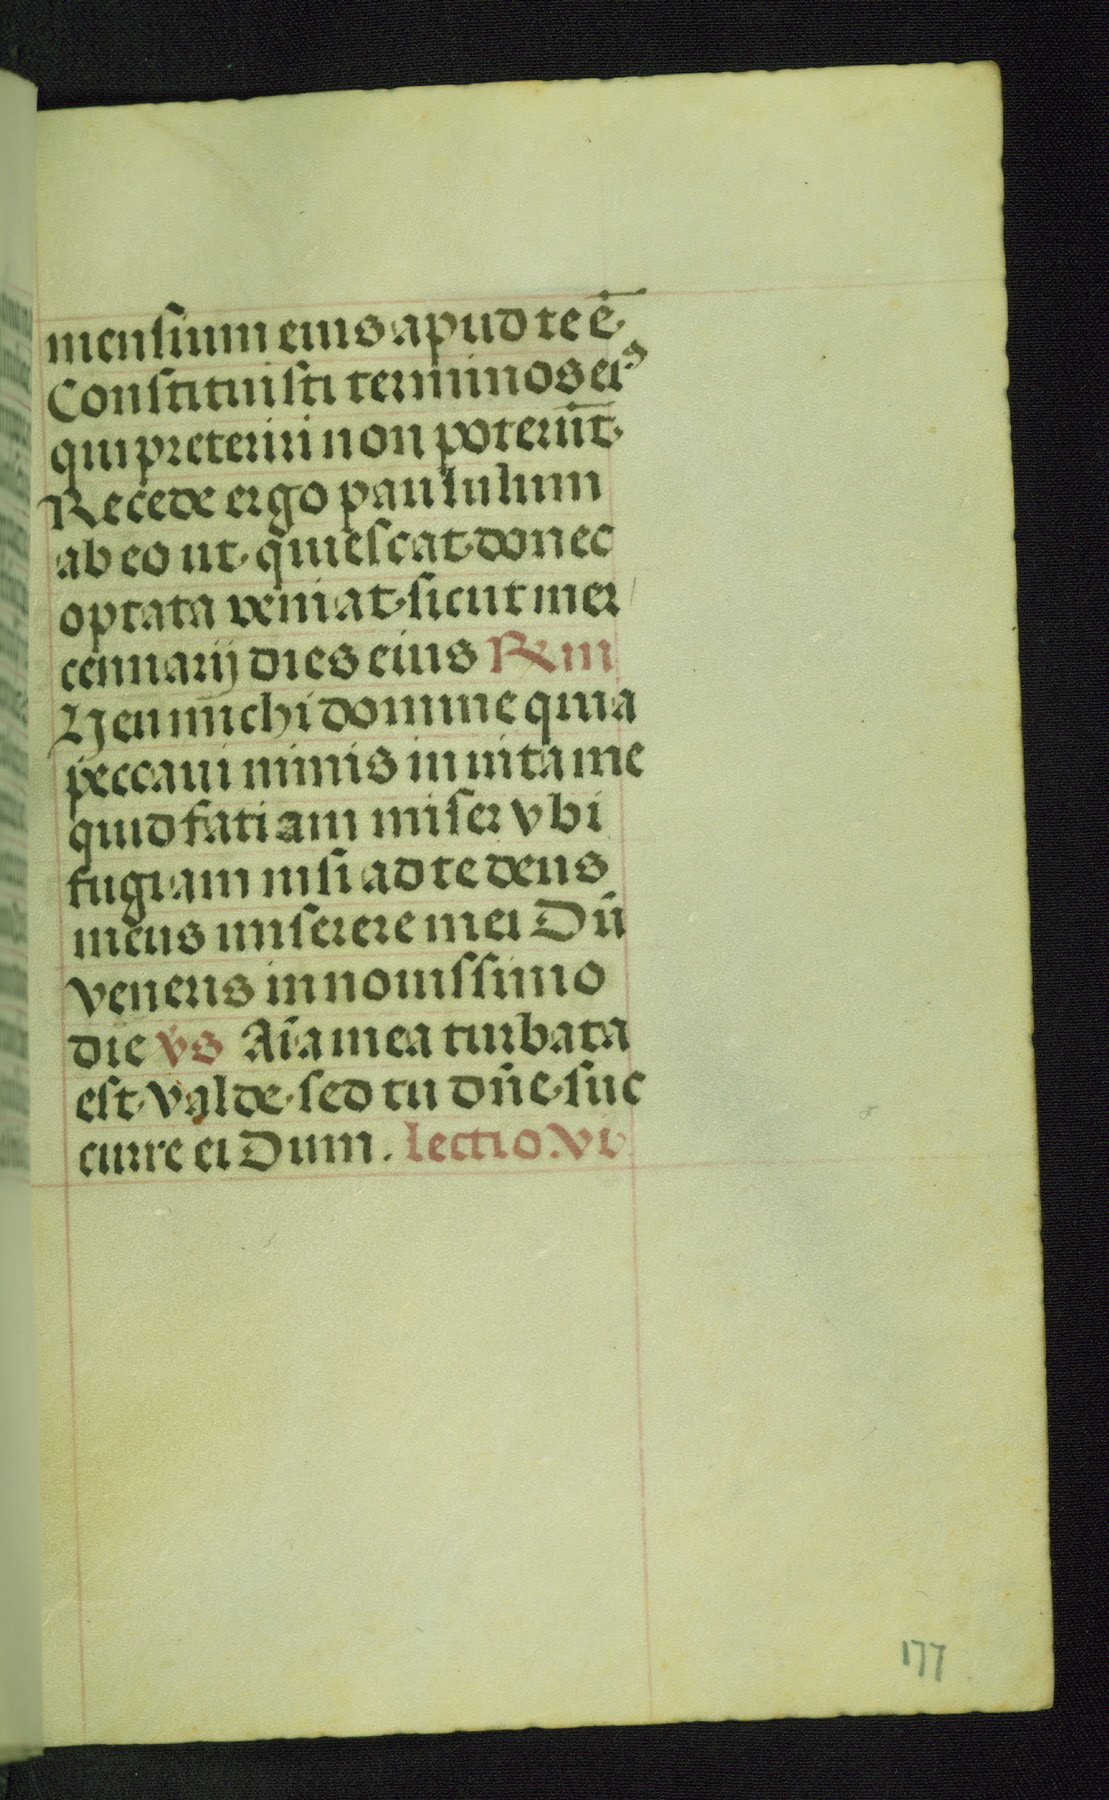 mensium eius apud te ē.
Constituisti terminos ei⁹
qui preteriri non poterūt.
Recede ergo paululum
ab eo ut quiescat donec
optata veniat sicut mer
cennarij dies eius R̃ m
Heu michi domine quia
peccaui nimis in uita me
quid fatiam miser vbi
fugiam nisi ad te deus
meus miserere mei Dū
veneris in nouissimo
die v̾s Aīa mea turbata
est valde sed tu dn̄e suc
curre ei Dum. lectio. vi
177